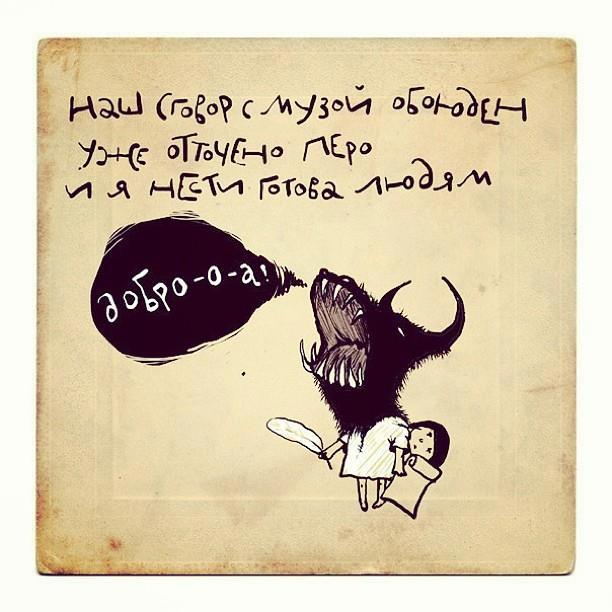 наш сговор с музой обоюден
уже отточено перо
и я нести готова людям
добро-о-а!